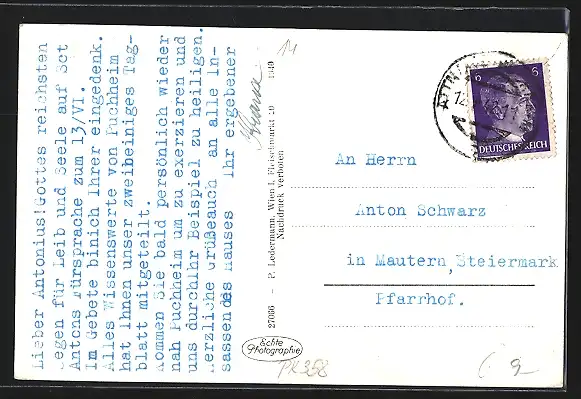 Lieber Antonius! Gottes reichsten
Segen für Leib und Seele auf Sct
Antons Fürsprache zum 13/VI.
Im Gebete binich Ihrer eingedenk.
Alles Wissenswerte von Puchheim
hat Ihnen unser zweibeiniges Tag-
blatt mitgeteilt.
Kommen Sie bald persönlich wieder
nah Puchheim um zu exerzieren und
uns durchIhr Beispiel zu heiligen.
Herzliche Grüßeauch an alle In-
sassen des Hauses Ihr ergebener
27086 – P. Ledermann, Wien I, Fleischmarkt 20 1940
Nachdruck verboten
Echte
Photographie
14
6 6
DEUTSCHES REICH
An Herrn
Anton Schwarz
in Mautern, Steiermark
Pfarrhof.
PK358